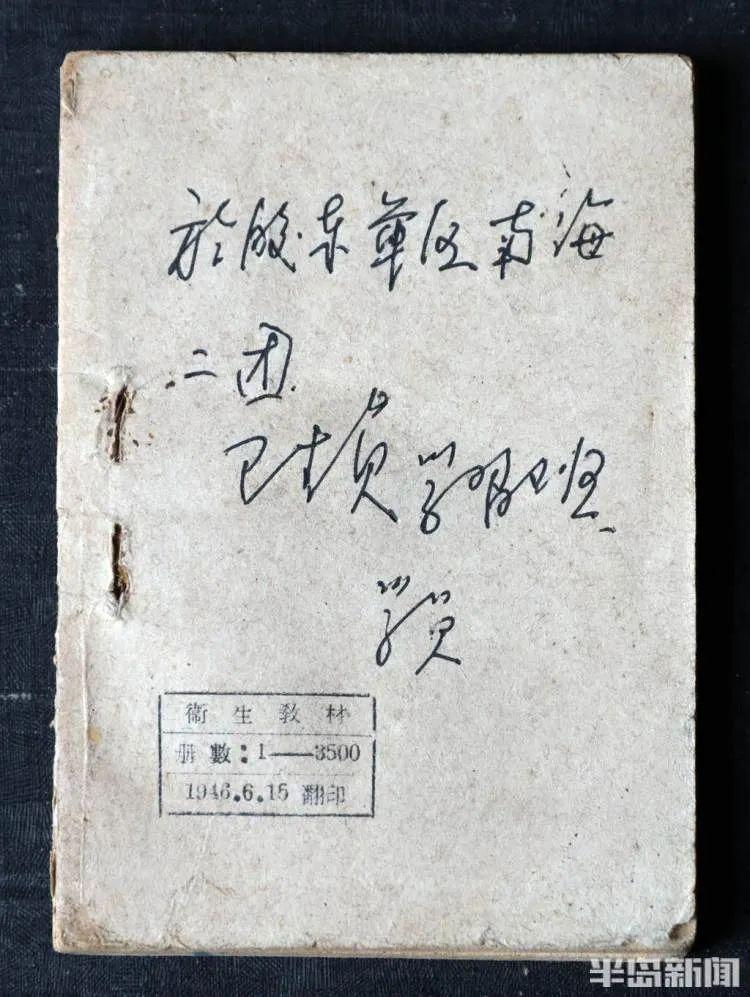 於胶东军区南海
二团
卫生员学习班
学员
衞生教材
册數:1——3500
1946.6.15 翻印
半岛新闻